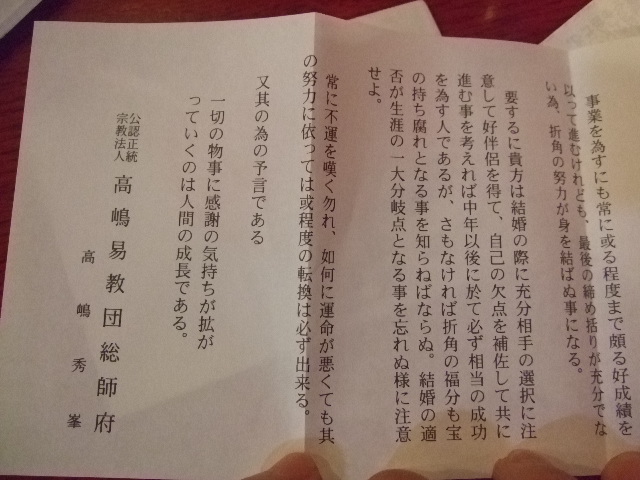 事業を為すにも常に或る程度まで頗る好成績を
以って進むけれども、最後の締め括りが充分でな
い為、折角の努力が身を結ばぬ事になる。
要するに貴方は結婚の際に充分相手の選択に注
意して好伴侶を得て、自己の欠点を補佐して共に
進む事を考えれば中年以後に於て必ず相当の成功
を為す人であるが、さもなければ折角の福分も宝
の持ち腐れとなる事を知らねばならぬ。結婚の適
否が生涯の一大分岐点となる事を忘れぬ様に注意
せよ。
常に不運を嘆く勿れ、如何に運命が悪くても其
の努力に依っては或程度の転換は必ず出来る。
又其の為の予言である
一切の物事に感謝の気持ちが拡が
っていくのは人間の成長である。
公認正統
宗教法人
高嶋易教団総師府
高嶋秀峯